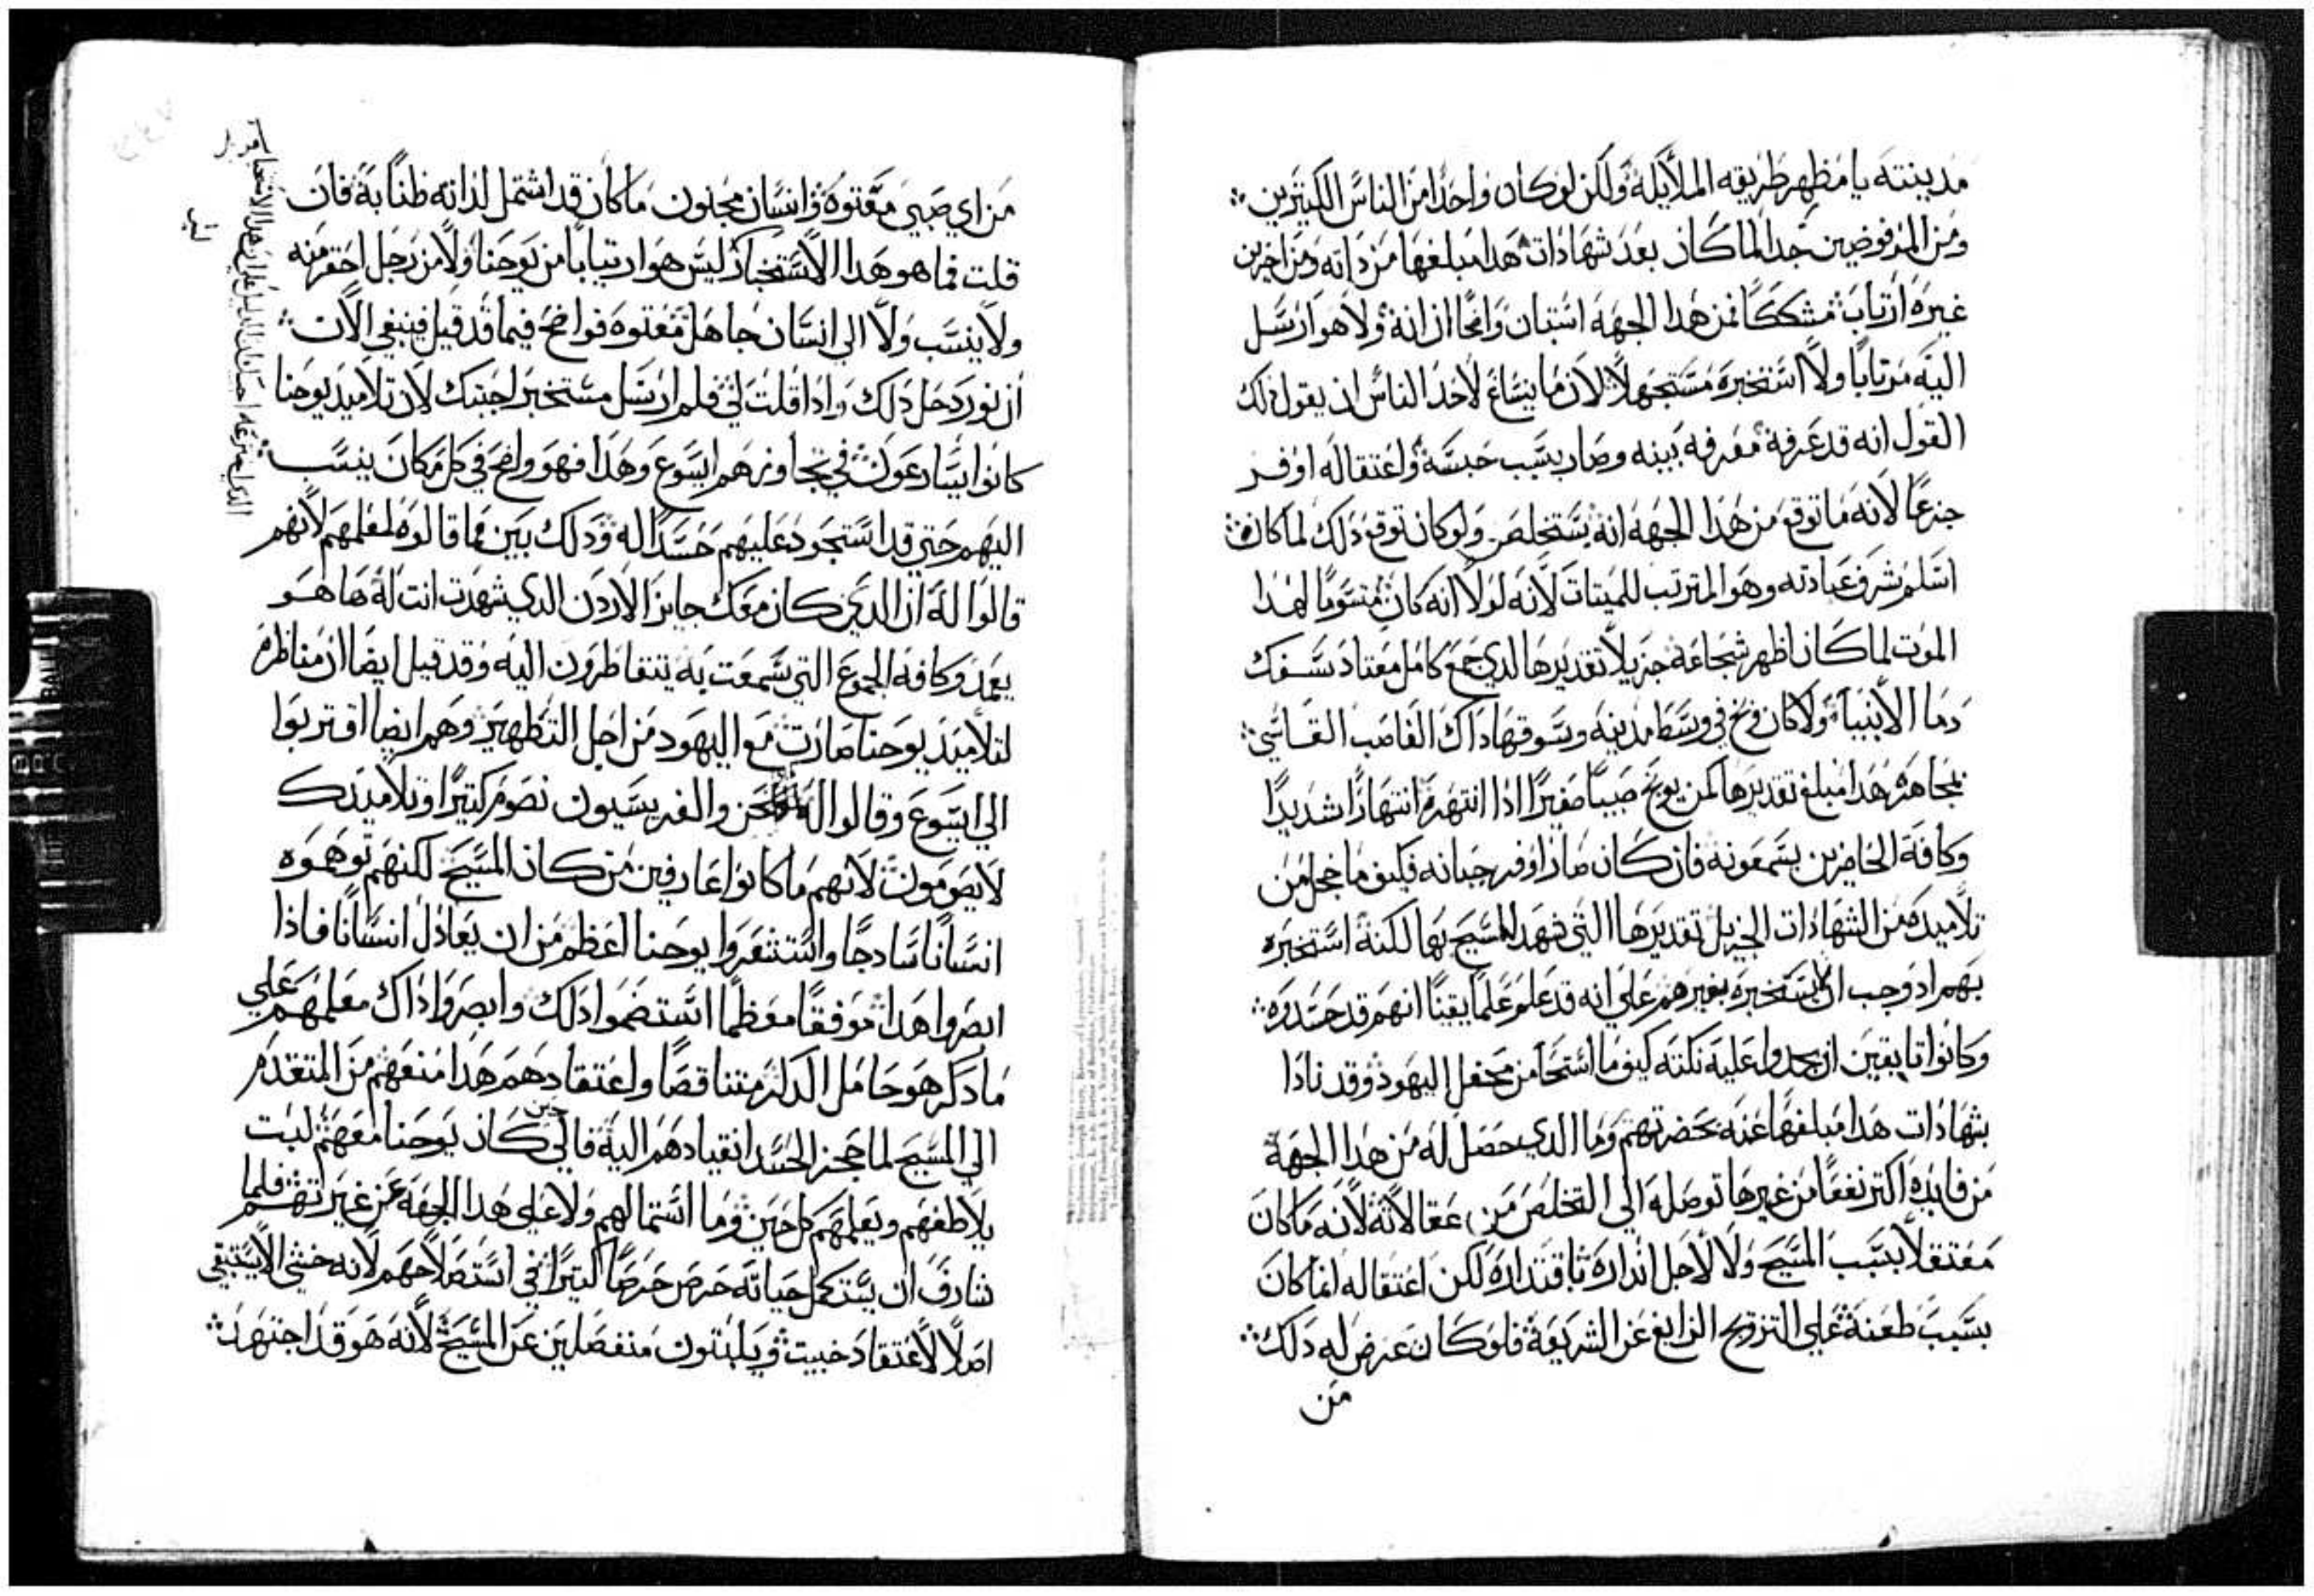 مدينته يا مظهر طريقه الملايكة ولكن لو كان واحدا من الناس الكتيرين
ومن المرفوضين جدا لما كان بعد شهادات هدا مبلغها من داته ومن اخرين
غيره ارتاب متشككا فمن هدا الجهه استبان واضحا ان انه ولا هو ارسل
اليه مرتابا ولا استخبره مستجهلا لان ما ينساغ لاحد الناس ان يقول دلك
القول انه قد عرفه معرفه بينه وصار بسبب حبسه واعتقاله اوفر
جزعا لانه ما توقع من هدا الجهه انه يستخلص ولو كان توقع دلك لما كان
اسلم شرف عبادته وهو المترتب للميتات لانه لولا انه كان متسويا لهدا
الموت لما كان اظهر شجاعه جزيلا تقديرها لدي جمع كامل معتاد سفك
دما الانبياء ولا كان وبخ في وسط مدينه وسوقها داك الغاصب القاسي
بمجاهره هدا مبلغ تقديرها كمن يوبخ صبيا صغيرا ادا انتهره انتهارا شديدا
وكافة الحاضرين يسمعونه فان كان صار اوفر جبانه فكيف ما خجل من
تلاميده من الشهادات الجزيل تقديرها التي شهد للمسيح بها لكنه استخبره
بهم اد وجب ان يستخبره بغيرهم علي انه قد علم علما يقينا انهم قد حسدوه
وكانوا تايقين ان يجدوا عليه نكته كيف ما استحا من محفل اليهود وقد نادا
بشهادات هدا مبلغها عنه بحضرتهم وما الدي حصل له من هدا الجهة
من فايده اكتر نفعا من غيرها توصله الي التخلص من عقالاته لانه ما كان
معتقلا بسبب المسيح ولا لاجل انداره باقتداره لكن اعتقاله انما كان
بسبب طعنه علي التزويج الزايغ عن الشريعة فلو كان عرض له دلك
من
من اي صبي معتوه وانسان مجنون ما كان قد اشتمل لذاته ظنا به فان
قلت فما هو هدا الاستخبار ليس هو ارتيابا من يوحنا ولا من رجل احقر منه
ولا ينسب ولا الي انسان جاهل معتوه فواضح فيما قد قيل فينبغي الان
ان نورد حل دلك وادا قلت لي فلم ارسل مستخبر اجبتك لان تلاميد يوحنا
كانوا يسارعون في تجاوزهم ايسوع وهدا فهو واضح في كل مكان ينسب
اليهم حتي قد استحود عليهم حسدا له ودلك بين مما قالوه لمعلمهم لانهم
قالوا له ان الدي كان معك جايز الاردن الدي شهدت انت له ها هو
يعمد وكافه الجموع التي سمعت به يتقاطرون اليه وقد قيل ايضا ان مناظره
لتلاميذ يوحنا صارت مع اليهود من اجل التطهير وهم ايضا اقتربوا
الي ايسوع وقالوا له نحن والفريسيون نصوم كتيرا وتلاميذك
لا يصومون لانهم ما كانوا عارفين من كان المسيح لكنهم توهموه
انسانا سادجا واستشعروا يوحنا اعظم من ان يعادل انسانا فاذا
ابصروا هدا موفقا معظما استضموا دلك وابصروا داك معلمهم علي
ما دكر هو حامل الدكر متناقصا واعتقادهم هدا منعهم من المتقدم
الي المسيح لما حجز الحسد انقيادهم اليه فالي حين كان يوحنا معهم لبت
يلاطفهم ويعلمهم كل حين وما استمالهم ولا علي هدا الجهه عن غيرتهم فلما
شارف ان يستكمل حياته حرص حرصا اكتر في استصلاحهم لانه خشي الا يستبقي
اصلا لاعتقاد خبيت ويلبتون منفصلين عن المسيح لانه هو قد اجتهد